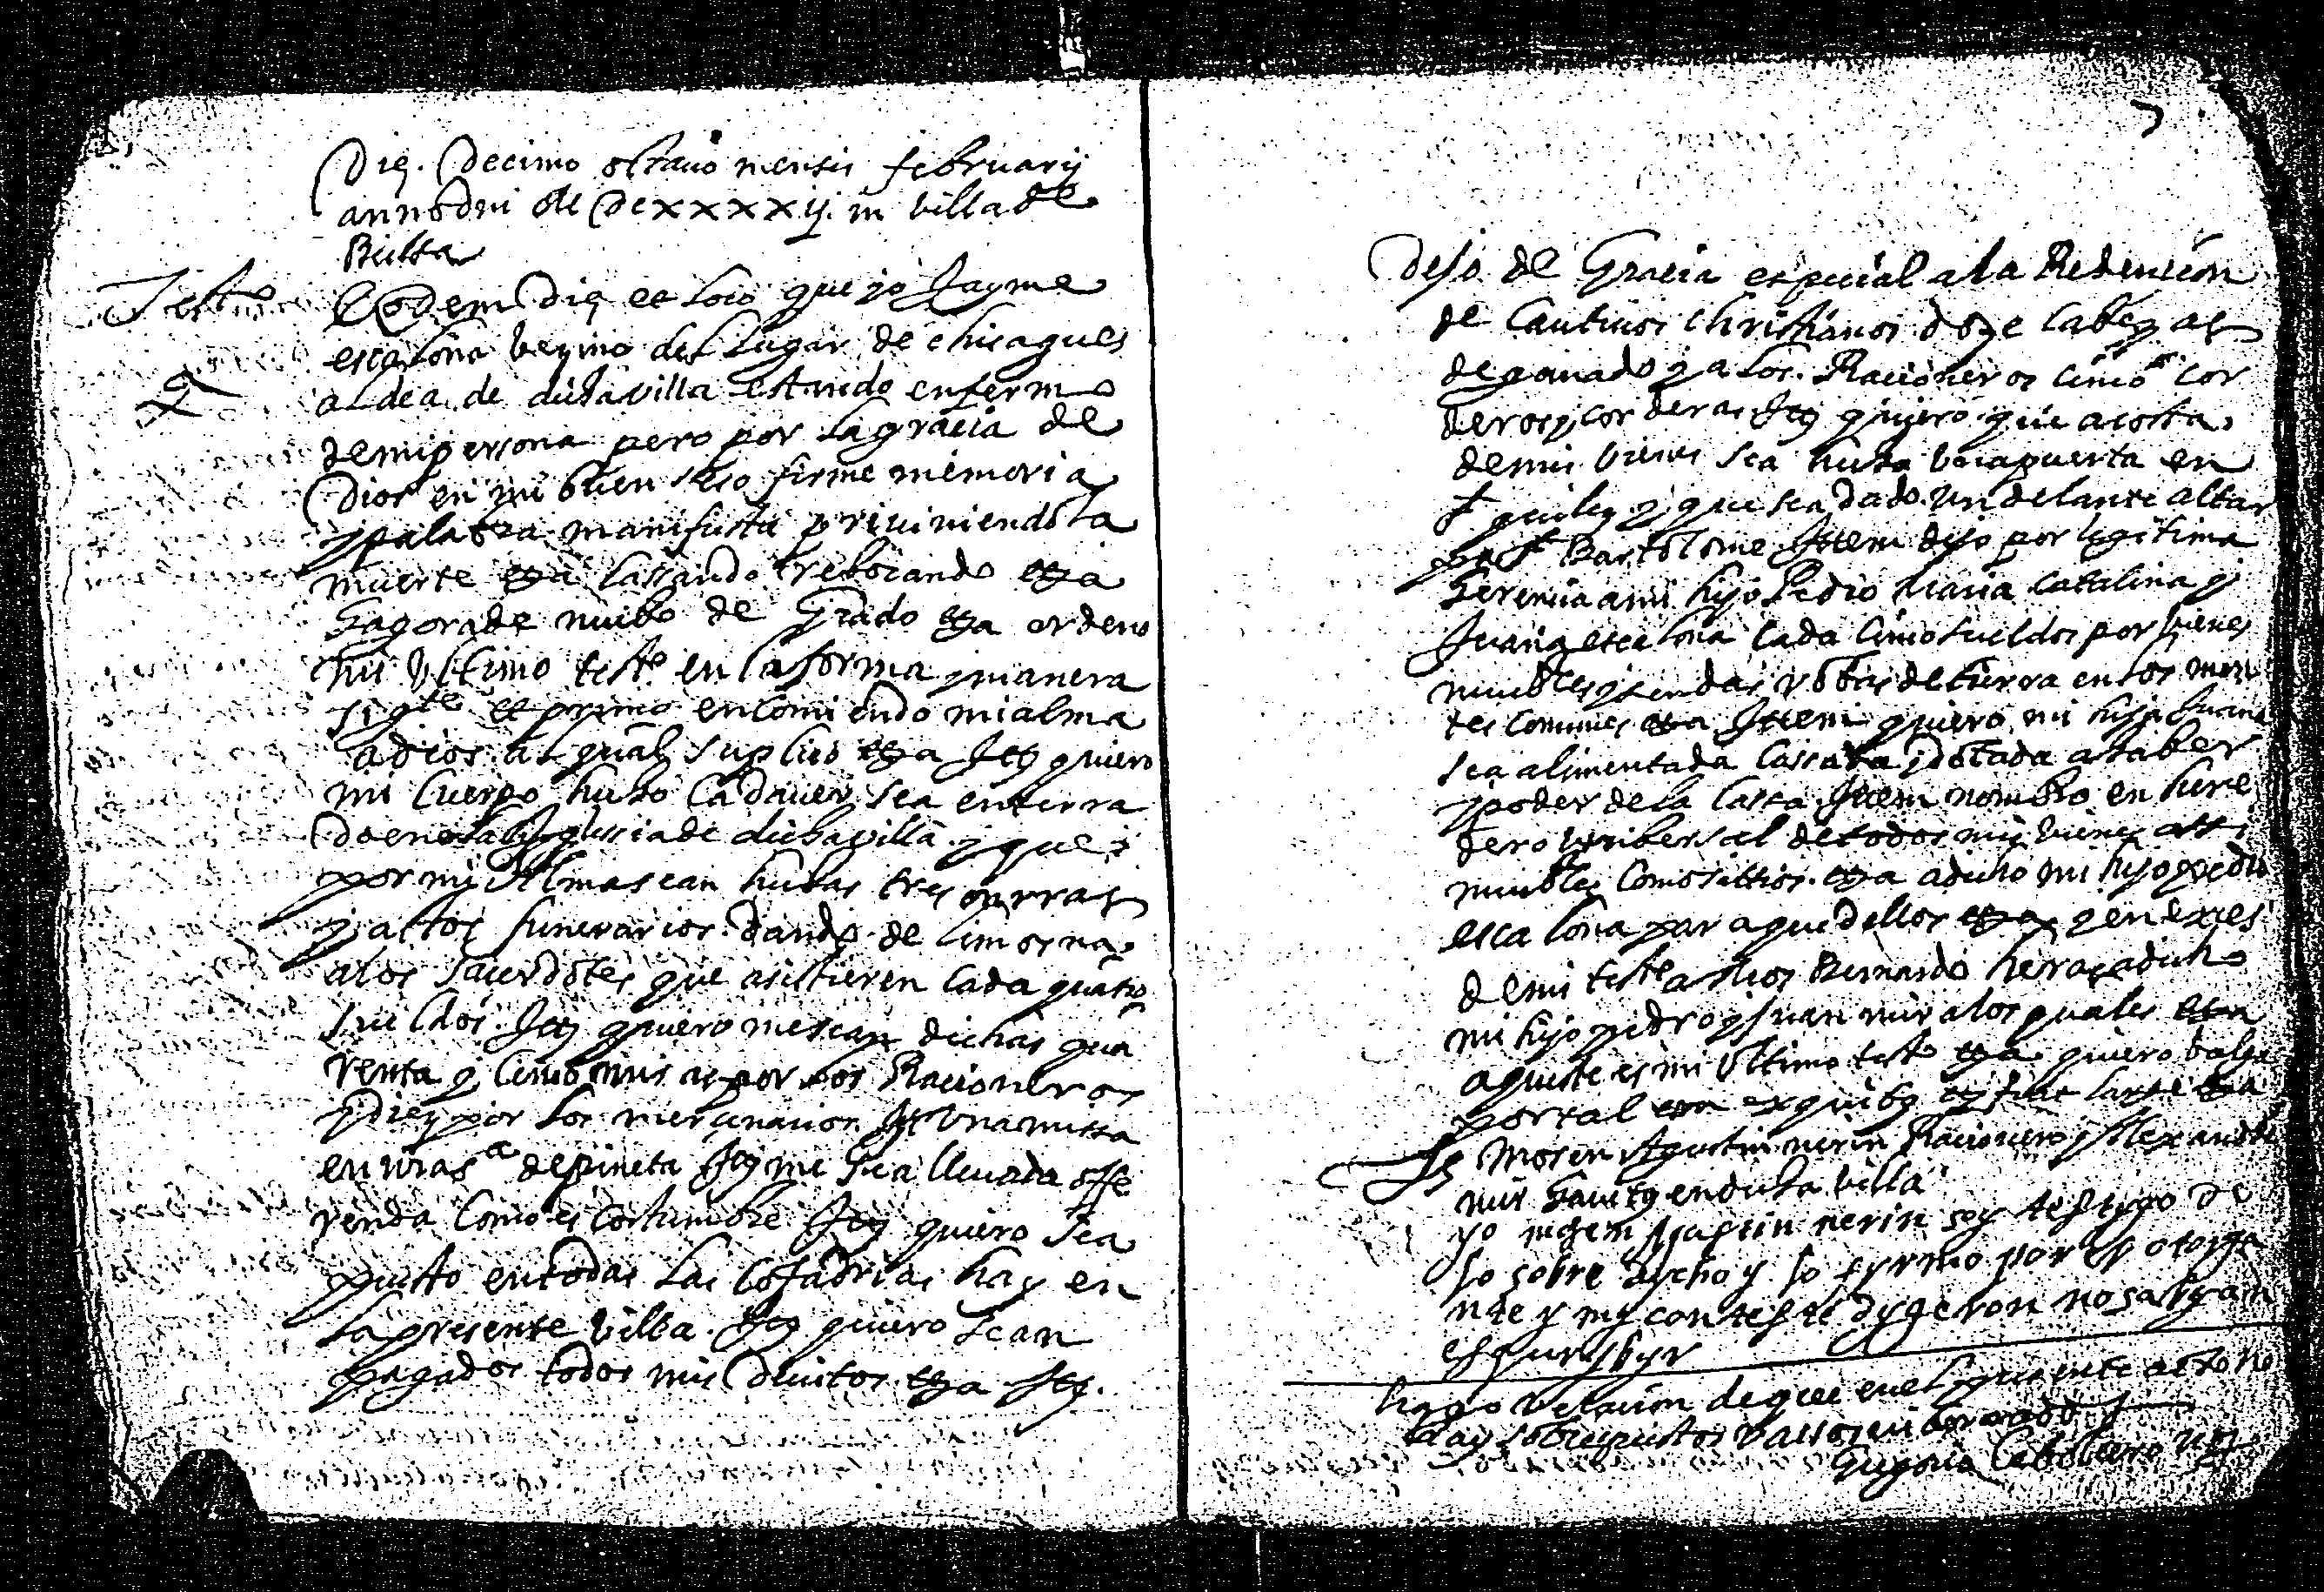 Die. Decimo octauo mensis februarij
anno dni M DCxxxxij. in villa de
Bielsa
Testo
Eodem die et loco que yo Jayme
escalona vezino del lugar de chisagues
aldea de dicha villa estando enfermo
de mi persona pero por la gracia de
Dios en mi buen seso firme memoria
y palabra manifiesta preuiniendo la
muerte etza cassando rebocando etza
y agora de nuebo de Grado etza ordeno
mi vltimo testo en la forma y manera
sigte et primo encomiendo mi alma
a dios al qual suplico etza Itt quiero
mi cuerpo hecho Cadauer sea enterra
do en la Iglesia de dicha villa y que
por mi Alma sean hechas tres onrras
y actos funerarios dando de limosna
a los sacerdotes que asistieren cada quatro
sueldos. Itt quiero me sean dichas qua
renta y cinco misas por los Racioneros
y diez por los mercenarios Itt vna missa
en nra sa de pineta Itt me sea lleuada offe
renda como es costumbre Itt quiero sea
puesto en todas las cofadrias hay en
la presente villa. Itt quiero sean
pagados todos mis deuitos etza Itt.
7
Dejo de Gracia especial a la Redencion
de Cautiuos christianos doze cabezas
de ganado y a los Racioneros cinco cor
deros y corderas Itt quiero que a costa
de mis bienes sea hecha vna puerta en
y que sea dado vn delante altar
pa St Bartolome Ittem dejo por legitima
herencia a mi hijo Pedro Maria Catalina y
Juana escalona cada cinco sueldos por bienes
muebles y sendas robas de tierra en los mon
tes comunes etza Ittem quiero mi hija Juana
sea alimentada cassada y dotada a haber
y poder de la cassa Ittem nombro en here
dero vnibersal de todos mis bienes assi
muebles como sittios etza a dicho mi hijo pedro
escalona para que dellos etza y en exes
de mi testo a mos Bernardo a dicho
mi hijo pedro y Juan mur a los quales etza
aqueste es mi vltimo testo etza quiero balga
por tal etza ex quibus etz fiat large etza
Ts Mosen Agustin nerin Racionero y Alexandre
mur hauitz en dicha villa
yo mosen Agustin nerin soy testigo de
lo sobre dycho y lo fyrmo por el otorga
nte y my conteste dygeron no sabyan
esqurybyr
hago relacion de que en el presente acto no
hay sobrepuestos rasos ni borrado
Gregorio Caballero not